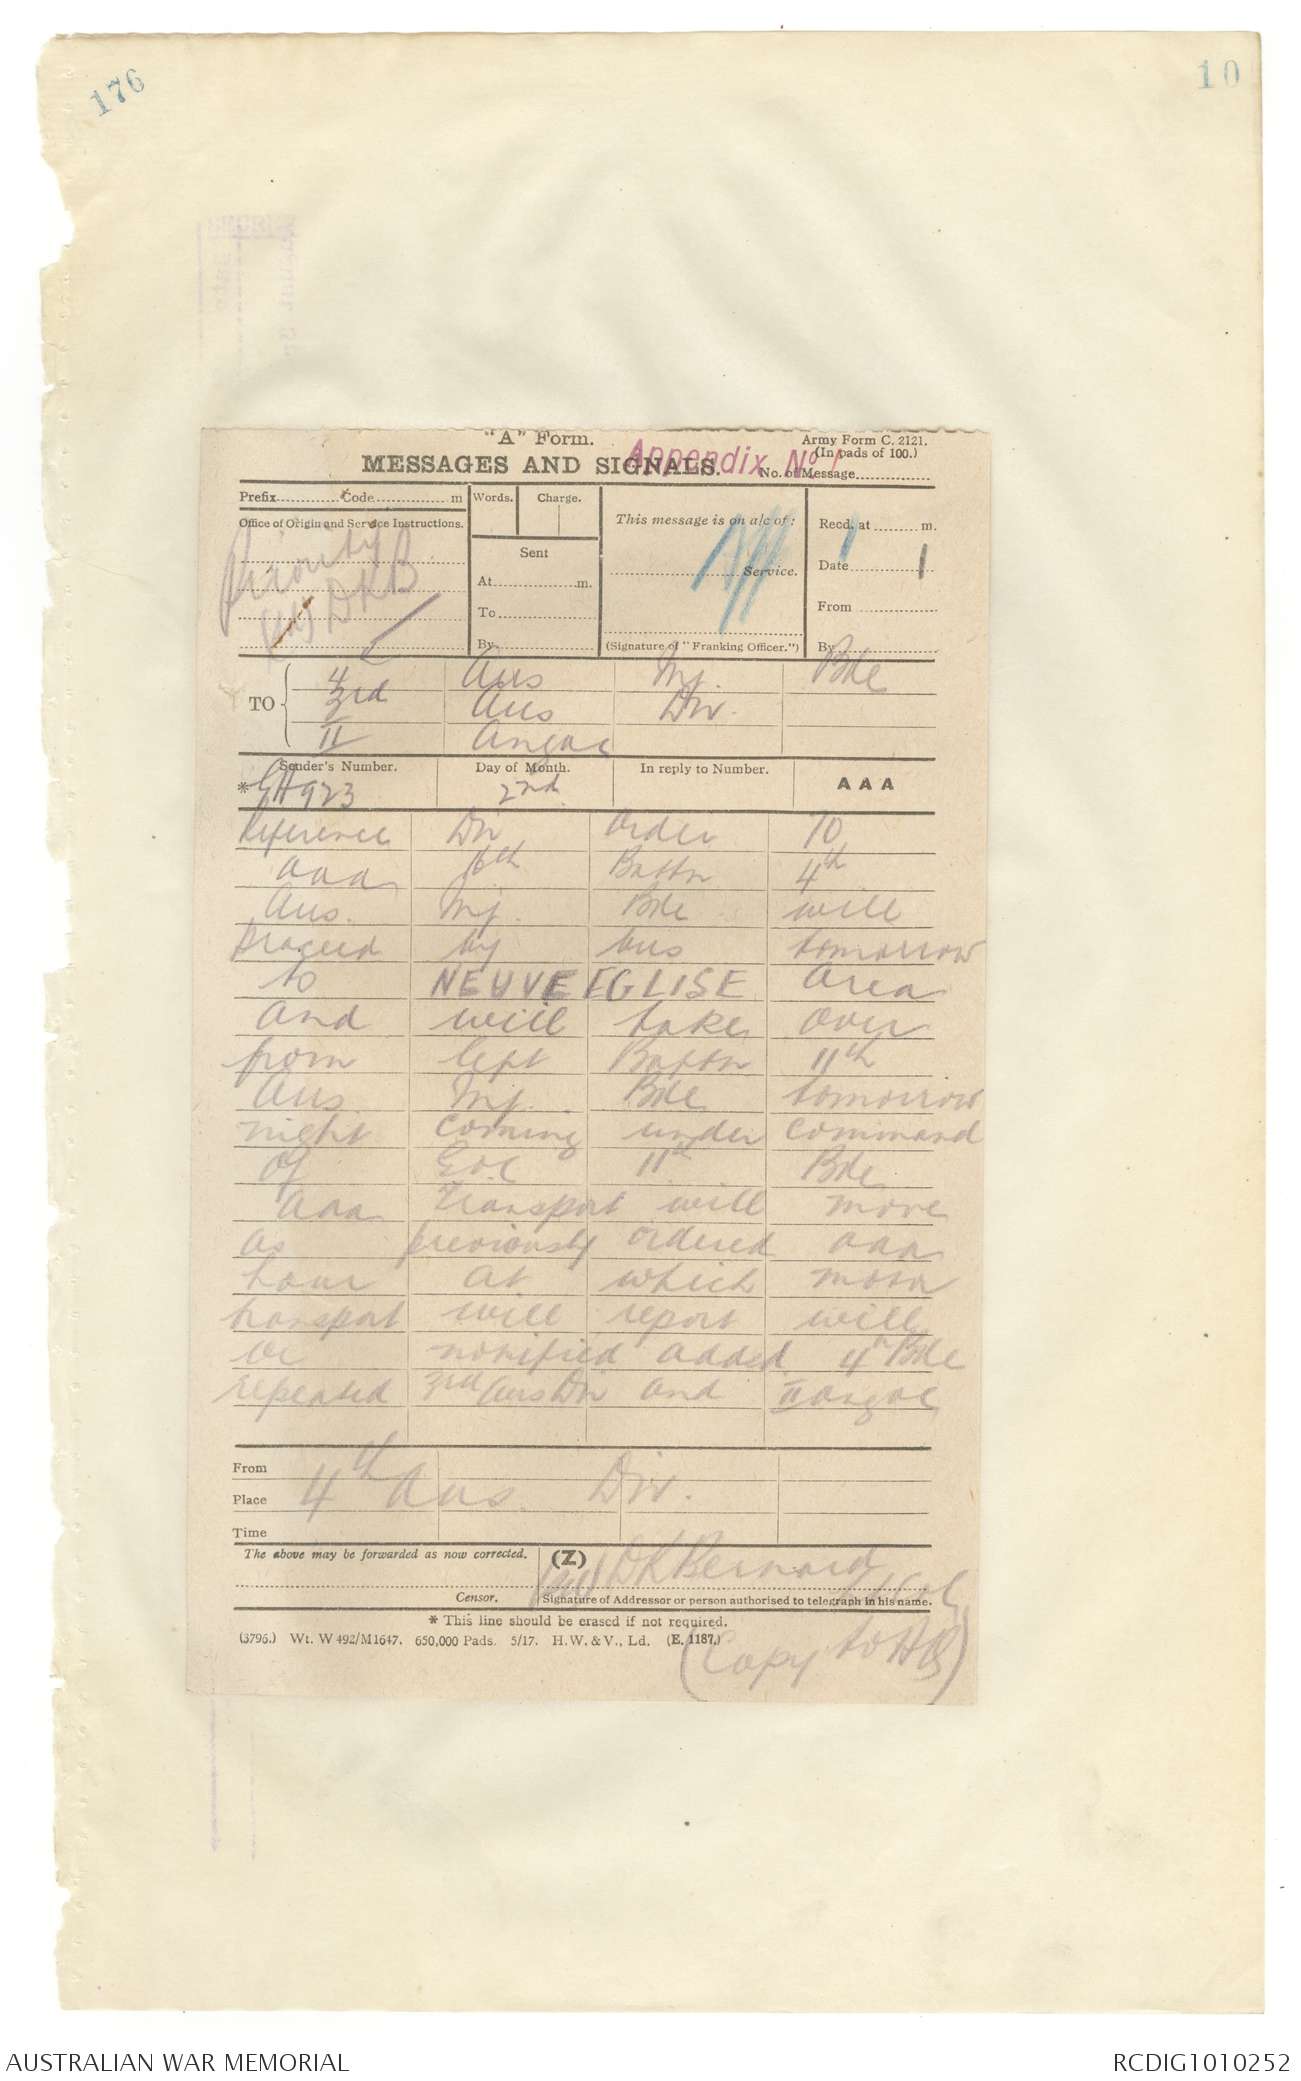 176
10
"A" Form.
Army Form C. 2121.
(In pads of 100.)
Appendix No 1
MESSAGES AND SIGNALS.
No. of Message
Prefix Code m
Words. Charge.
This message is on a/c of:
Recd. at m.
Office of Origin and Service Instructions.
Priority
DKB
Sent
At m.
To
By
Service.
(Signature of "Franking Officer.")
Date
From
By
TO
4 Aus Inf. Bde
3rd Aus Div.
II Anzac
Sender's Number. Day of Month. In reply to Number. AAA
* GH923 2nd
Reference Div Order 70
aaa 16th Battn 4th
Aus. Inf. Bde will
proceed by bus tomorrow
to NEUVE EGLISE area
and will take over
from left Battn 11th
Aus Inf. Bde tomorrow
night coming under command
of GOC 11th Bde
aaa Transport will move
as previously ordered aaa
hour at which motor
transport will report will
be notified added 4th Bde
repeated 3rd Aus Div and II Anzac
From
Place
Time
4th Aus. Div.
The above may be forwarded as now corrected.
(Z)
DK Bernard
Lt Col
Censor.
Signature of Addressor or person authorised to telegraph in his name.
* This line should be erased if not required.
(3796.) Wt. W 492/M1647. 650,000 Pads. 5/17. H.W. & V., Ld. (E. 1187.)
(Copy to
AUSTRALIAN WAR MEMORIAL
RCDIG1010252